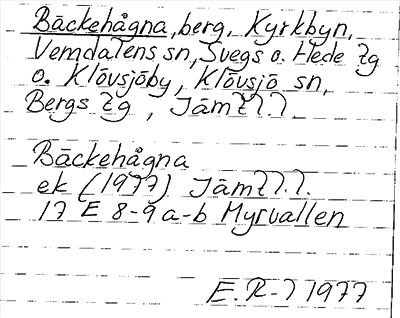 Bäckehågna, berg, Kyrkbyn,
Vemdalens sn, Svegs o. Hede tg
o. Klövsjöby, Klövsjö sn,
Bergs tg, Jämtl.
Bäckehågna
ek (1977) Jämtl.
17 E 8-9 a-b Myrvallen
E.R-l 1977